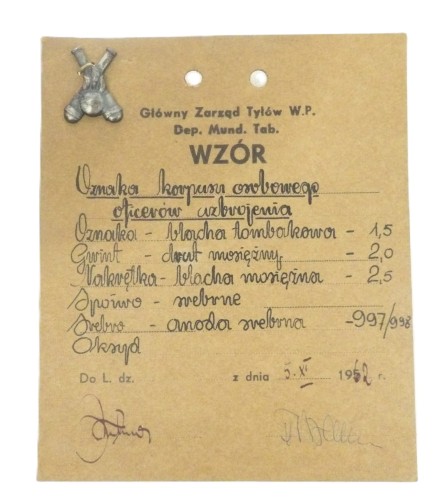 Główny Zarząd Tyłów W.P.
Dep. Mund. Tab.
WZÓR
Oznaka korpusu osobowego
oficerów uzbrojenia
Oznaka - blacha tombakowa - 1,5
Gwint - drut mosiężny - 2,0
Nakrętka - blacha mosiężna - 2,5
Spoiwo - srebrne
Srebro - anoda srebrna - 997/998
Oksyd
Do L. dz. z dnia 5. XI 1952 r.